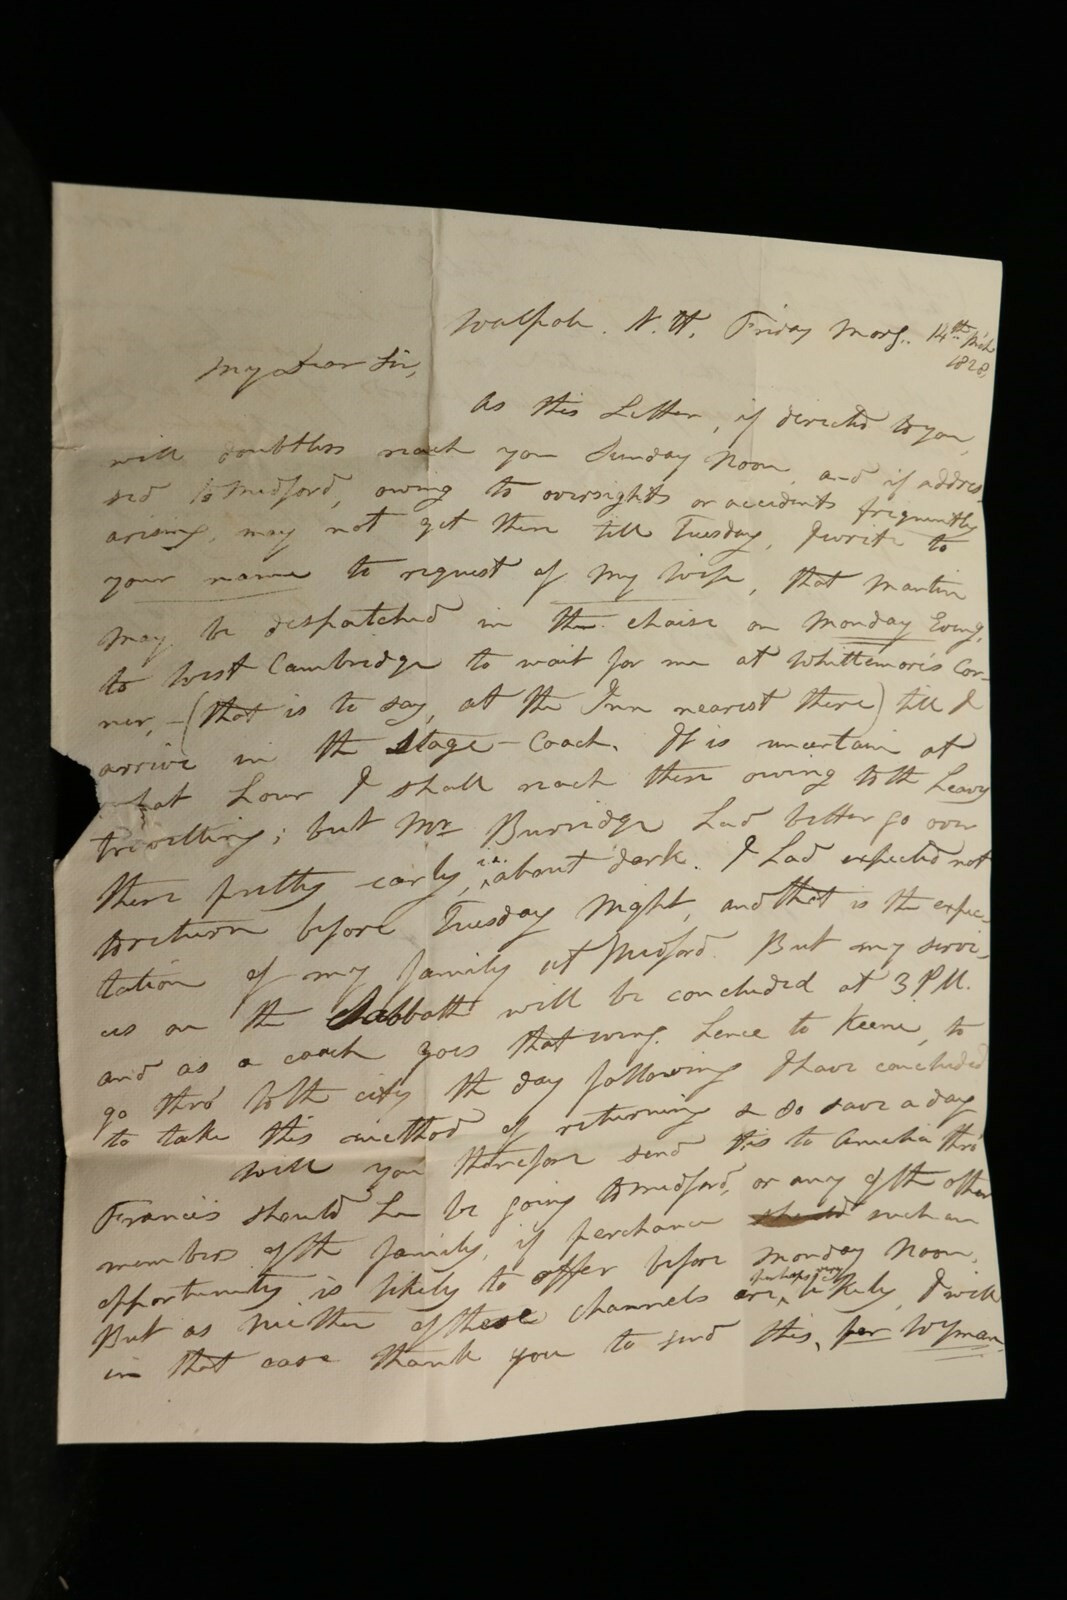 Walpole. N. H. Friday Morg. 14th Mch
1828,
My Dear Sir,
As this Letter, if directed to you,
will doubtless reach you Sunday Noon, and if addres
sed to Medford, owing to oversights or accidents frequently
arising, may not get there till Tuesday, I write to
your name to request of my wife, that Martin
may be despatched in the chaise on Monday Eveng,
to West Cambridge to wait for me at Whittemore's Cor-
ner, - (that is to say, at the Inn nearest there) till I
arrive in the Stage-Coach. It is uncertain at
what hour I shall reach there owing to the heavy
travelling; but Mr Burridge had better go over
there pretty early, i.e. about dark. I had expected not
to return before Tuesday Night, and that is the expec-
tation of my family at Medford. But my servi-
ces on the Sabbath will be concluded at 3 P.M.
and as a coach goes that eveng. hence to Keene, to
go thro' to the city the day following I have concluded
to take this method of returning & so save a day
Will you therefore send this to Amelia thro'
Francis should he be going to Medford, or any of the other
members of the family, if perchance should such an
opportunity is likely to offer before Monday Noon.
But as neither of these channels are perhaps very likely, I will
in that case thank you to send this, per Wyman,